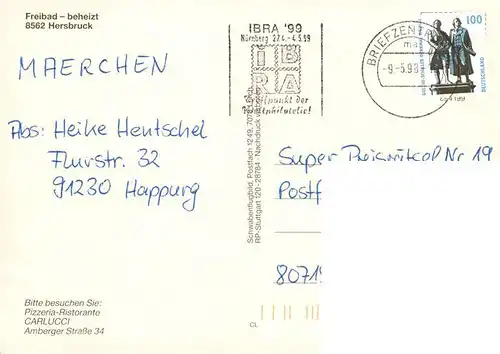 Freibad – beheizt
8562 Hersbruck
MAERCHEN
Abs: Heike Hentschel
Flurstr. 32
91230 Happurg
Bitte besuchen Sie:
Pizzeria-Ristorante
CARLUCCI
Amberger Straße 34
IBRA '99
Nürnberg 27.4.-4.5.99
IB
RA
der
BRIEFZENTR
ma
-9.-5.99
100
DEUTSCHLAND
Schwabenflugbild, Postfach 1249,
RP-Stuttgart 120-28784 - Nachdruck verboten
Super Nr 19
Postf
8071
CL